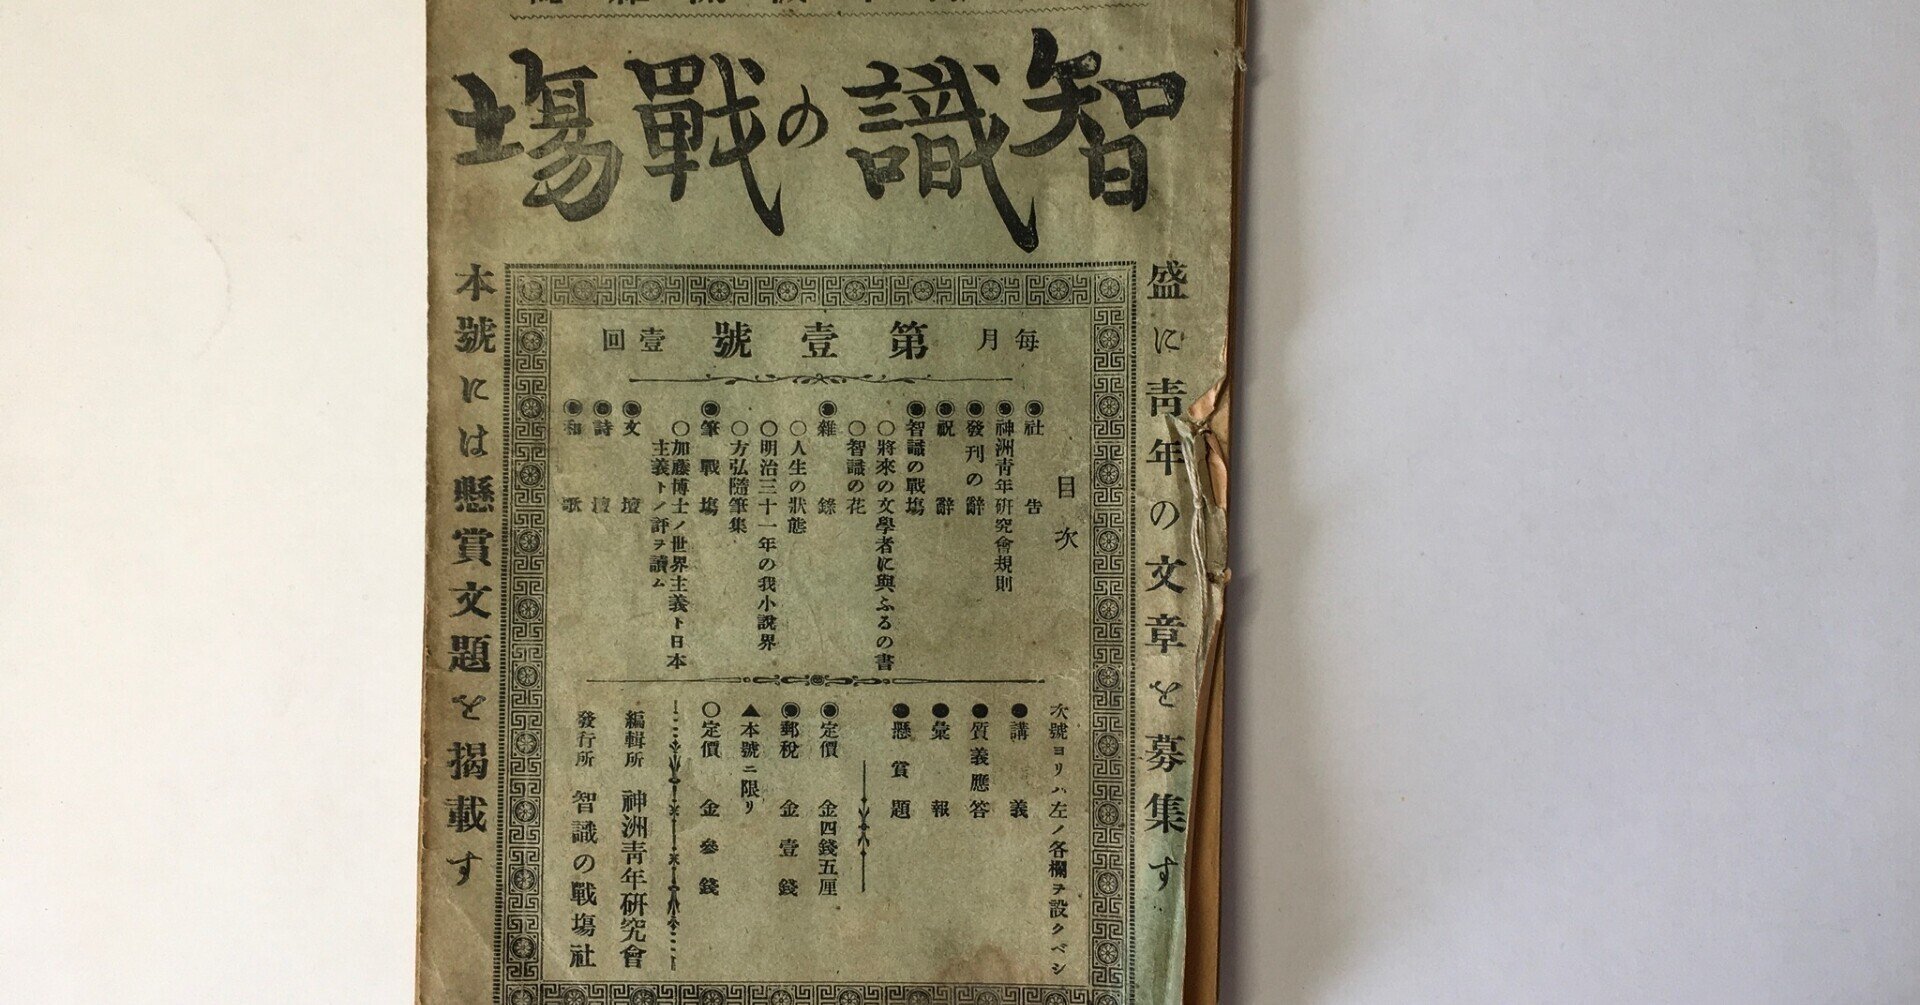 智識の戰塲
盛に青年の文章を募集す
毎月
第壹號
壹回
目次
◉社告
◉神洲青年研究會規則
◉發刊の辭
◉祝辭
◉智識の戰塲
○將來の文學者に與ふるの書
○智識の花
◉雜錄
○人生の狀態
○明治三十一年の我小說界
○方弘隨筆集
◉筆戰塲
○加藤博士ノ世界主義ト日本
主義トノ評ヲ讀ム
◉文壇
◉詩壇
◉和歌
次號ヨリハ左ノ各欄ヲ設クベシ
●講義
●質義應答
●彙報
●懸賞題
◉定價 金四錢五厘
◉郵稅 金壹錢
▲本號ニ限リ
○定價 金參錢
編輯所 神洲青年研究會
發行所 智識の戰塲社
本號には懸賞文題を揭載す